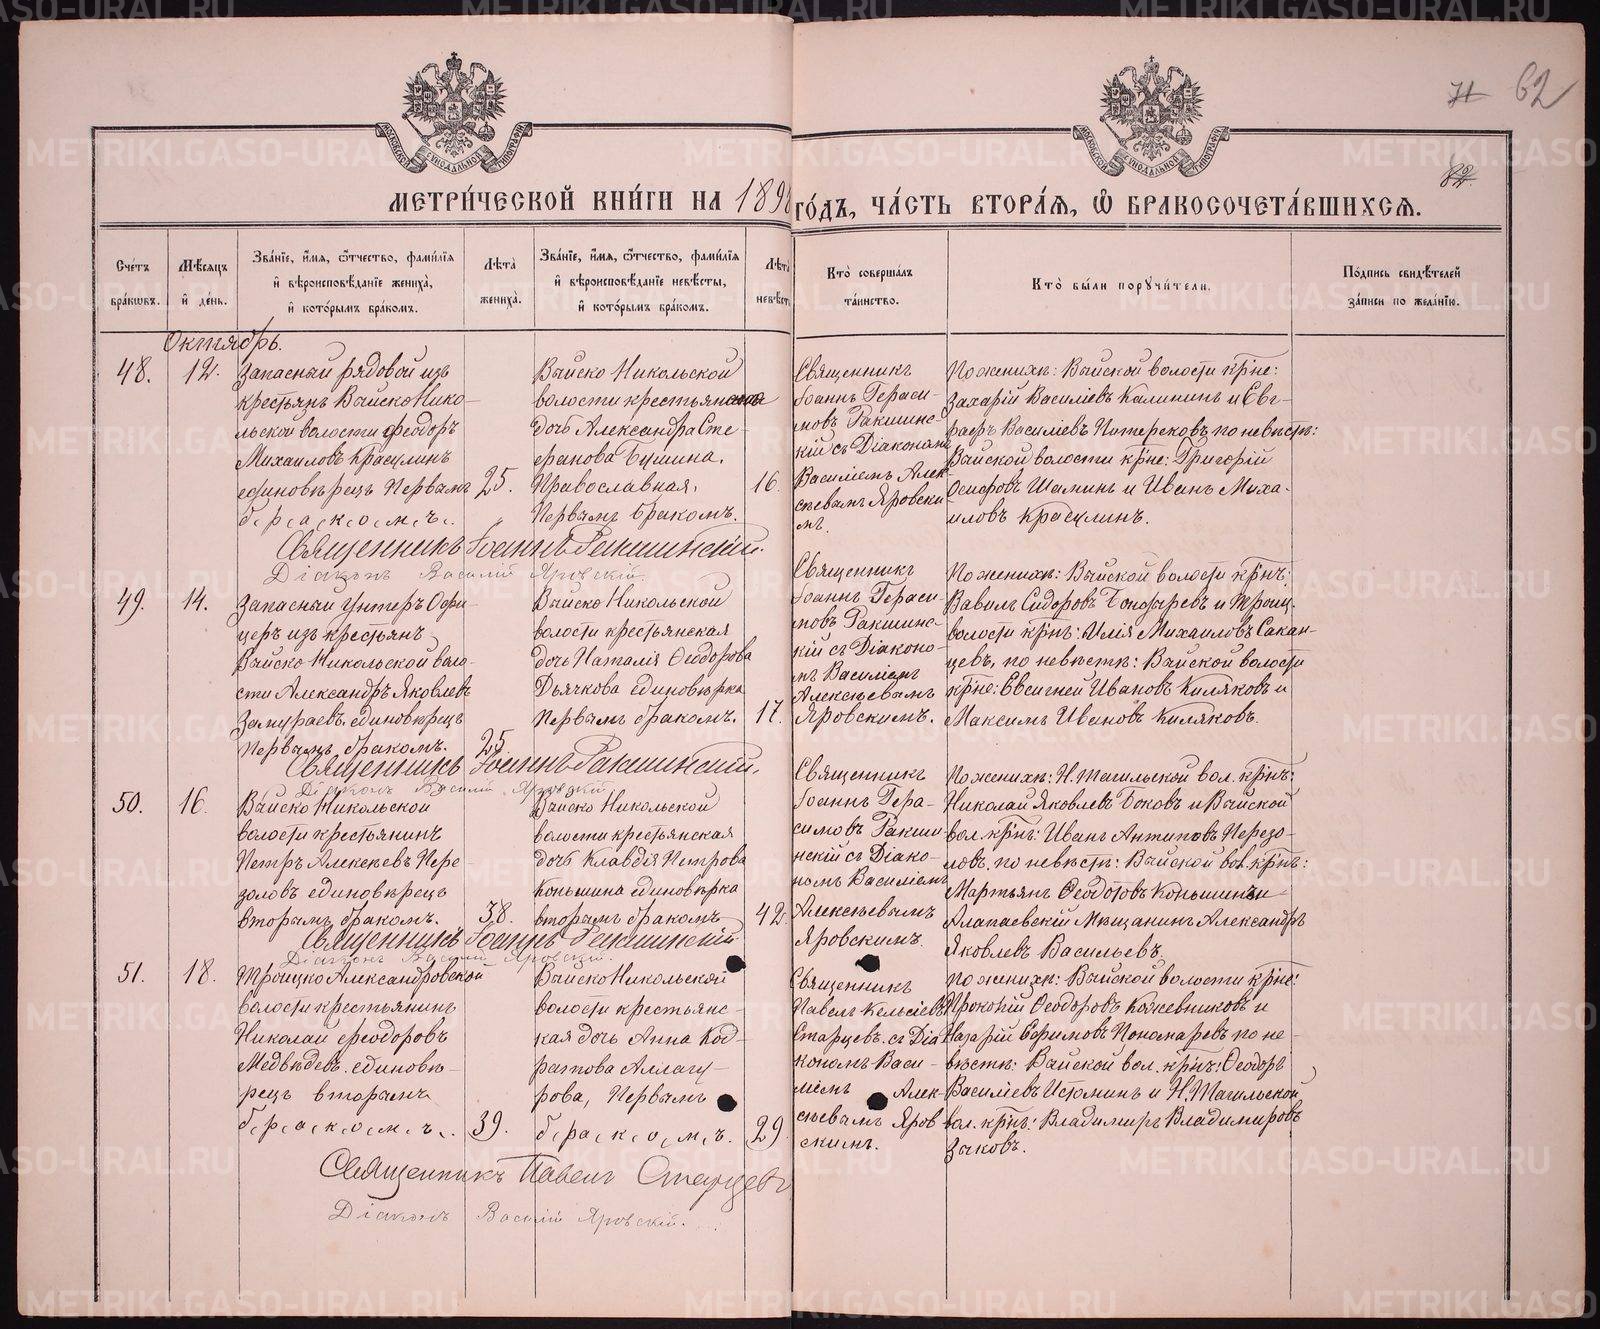 71 62
82.
МЕТРИ́ЧЕСКОЙ КНИ́ГИ НА 1898 ГО́ДЪ, ЧА́СТЬ ВТОРА́Я, Ѡ БРАКОСОЧЕТА́ВШИХСЯ.
Сче́тъ бра́кѡвъ.
Мѣ́сяцъ и҆ де́нь.
Зва́нїе, и҆́мя, ѻ҆́тчество, фами́лїя и҆ вѣроисповѣ́данїе жениха̀, и҆ кото́рымъ бра́комъ.
Лѣ́та̀ жениха̀.
Зва́нїе, и҆́мя, ѻ҆́тчество, фами́лїя и҆ вѣроисповѣ́данїе невѣ́сты, и҆ кото́рымъ бра́комъ.
Лѣ́та̀ невѣ́ст
Кто̀ соверша́лъ та́инство.
Кто̀ бы́ли порꙋчи́тели.
По́дпись свидѣ́телей за́писи по жела́нїю.
Октябрь.
48.
12.
Запасный рядовой изъ
крестьянъ Выйско Нико-
льской волости Ѳеодоръ
Михаиловъ Красулинъ
единовѣрецъ Первымъ
б,р,а,к,о,м,ъ,.
25.
Выйско Никольской
волости крестьянская
дочь Александра Сте-
фанова Бушина.
Православная.
Первымъ бракомъ.
16.
Священникъ
Іоаннъ Гераси-
мовъ Ракшинс-
кій съ Діакономъ
Василіемъ Алек
сѣевымъ Яровски
мъ.
По женихѣ: Выйской волости крⷭ҇не:
Захарій Василіевъ Калининъ и Евг-
рафъ Василіевъ Питерсковъ по невѣстѣ:
Выйской волости крⷭ҇не: Григорій
Осифовъ Шаминъ и Иванъ Миха-
иловъ Красулинъ.
Священникъ Іоаннъ Ракшинскій.
Діаконъ Василій Яровскій.
49.
14.
Запасный Унтеръ Офи-
церъ изъ крестьянъ
Выйско Никольской воло-
сти Александръ Яковлевъ
Замураевъ. единовѣрецъ
Первымъ бракомъ.
25.
Выйско Никольской
волости крестьянская
дочь Наталія Ѳеодорова
Дьячкова единовѣрка
Первымъ бракомъ.
17.
Священникъ
Іоаннъ Гераси-
мовъ Ракшинс-
кій съ Діаконо-
мъ Василіемъ
Алексѣевымъ
Яровскимъ.
По женихѣ: Выйской волости крⷭ҇нъ:
Вавилъ Сидоровъ Бондаревъ и Троиц.
волости крⷭ҇нъ: Илія Михаиловъ Сакан-
цевъ, по невѣстѣ: Выйской волости
крⷭ҇не: Евсигней Ивановъ Киляковъ и
Максимъ Ивановъ Киляковъ.
Священникъ Іоаннъ Ракшинскій.
Діаконъ Василій Яровскій
50.
16.
Выйско Никольской
волости крестьянинъ
Петръ Алексѣевъ Пере-
золовъ единовѣрецъ
вторымъ бракомъ.
38.
Выйско Никольской
волости крестьянская
дочь Клавдія Петрова
Коньшина единовѣрка
вторымъ бракомъ
42.
Священникъ
Іоаннъ Гера-
симовъ Ракши-
нскій съ Діако-
номъ Василіемъ
Алексѣевымъ
Яровскимъ.
По женихѣ: Н. Тагильской вол. крⷭ҇нъ:
Николай Яковлевъ Боковъ и Выйской
вол. крⷭ҇нъ: Иванъ Антиповъ Перезо-
ловъ. по невѣстѣ: Выйской вол. крⷭ҇нъ:
Мартьянъ Ѳеодотовъ Коньшинъ и
Алапаевскій Мѣщанинъ Александръ
Яковлевъ Васильевъ.
Священникъ Іоаннъ Ракшинскій
Діаконъ Василій Яровскій.
51.
18.
Троицко Александровской
волости крестьянинъ
Николай Ѳеодоровъ
Медвѣдевъ. единовѣ-
рецъ вторымъ
б,р,а,к,о,м,ъ,.
39.
Выйско Никольской
волости крестьянс-
кая дочь Анна Код-
ратова Аллагу-
рова, Первымъ
б,р,а,к,о,м,ъ.
29.
Священникъ
Павелъ Кельсіевъ
Старцевъ. съ Діа
кономъ Васи-
ліемъ Алек-
сѣевымъ Яров
скимъ.
По женихѣ: Выйской волости крⷭ҇не:
Прокопій Ѳеодоровъ Кожевниковъ и
Назарій Ефимовъ Пономаревъ по не-
вѣстѣ: Выйской вол. крⷭ҇нъ: Ѳеодоръ
Василіевъ Истоминъ и Н. Тагильской
вол. крⷭ҇нъ: Владимиръ Владимировъ
Зыковъ.
Священникъ Павелъ Старцевъ
Діаконъ Василій Яровскій.
METRIKI.GASO-URAL.RU